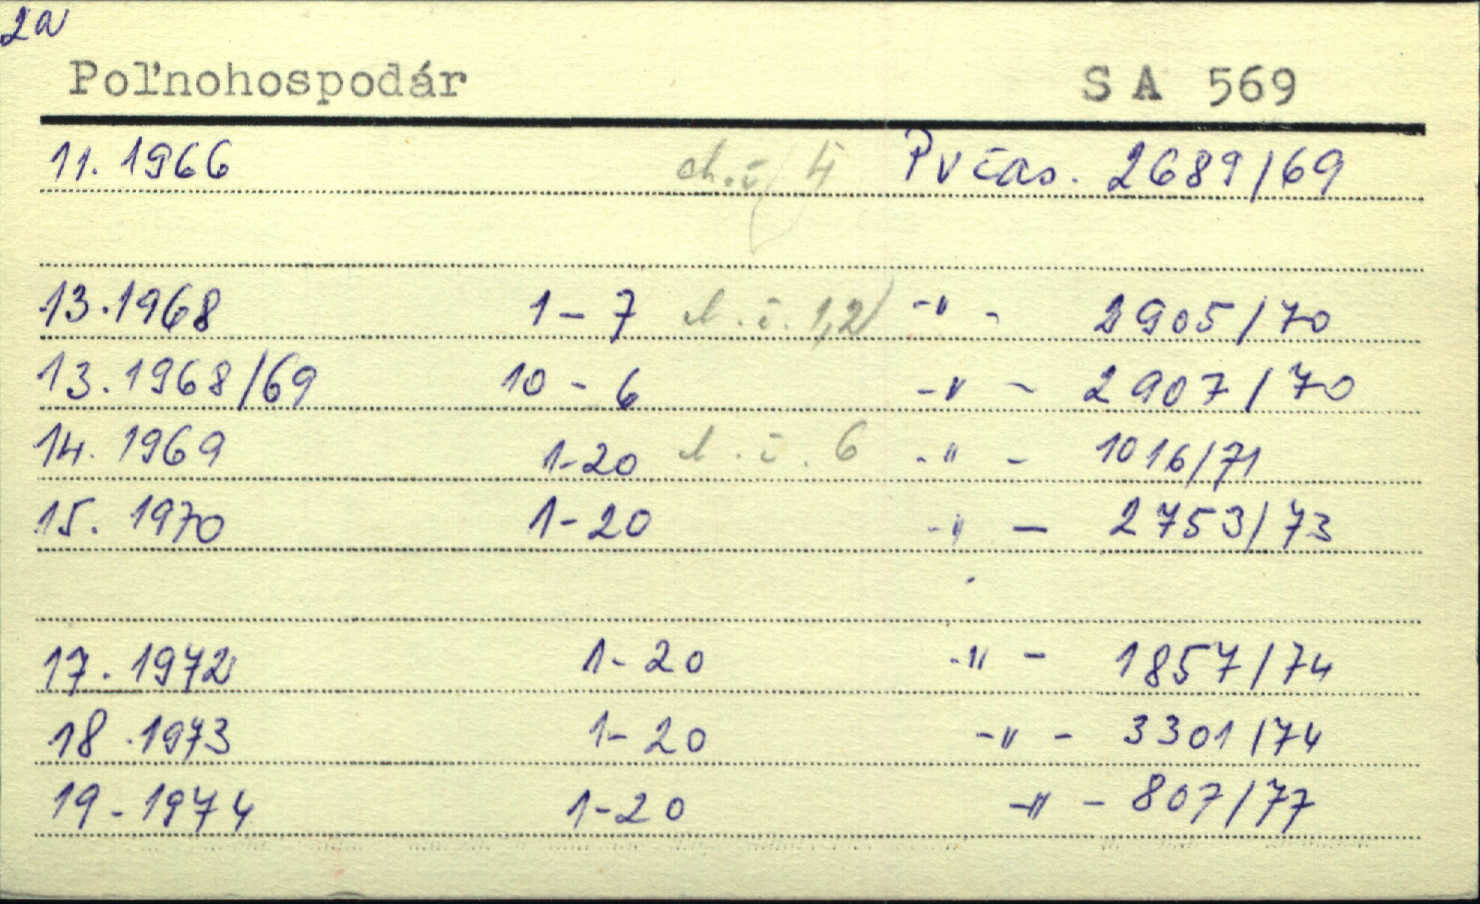 2a
Poľnohospodár SA 569
11. 1966 ch.č. 4 Pvčas. 2689/69
13. 1968 1-7 ch.č. 1,2 -"- 2905/70
13. 1968/69 10-6 -"- 2907/70
14. 1969 1-20 ch.č. 6 -"- 1016/71
15. 1970 1-20 -"- 2753/73
17. 1972 1-20 -"- 1857/74
18. 1973 1-20 -"- 3301/74
19. 1974 1-20 -"- 807/77